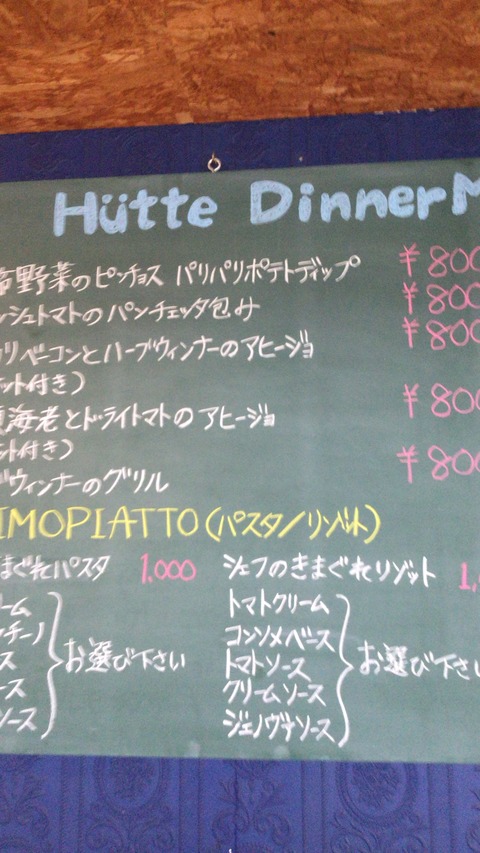 Hütte Dinner M
野菜のピンチョス パリパリポテトディップ ¥800
ッシュトマトのパンチェッタ包み ¥800
リベーコンとハーブウィンナーのアヒージョ ¥800
ット付き)
海老とドライトマトのアヒージョ ¥800
ット付き)
ブウィンナーのグリル ¥800
IMOPIATTO(パスタ/リゾット)
まぐれパスタ 1,000
ーム
ンチーノ
ス
ース
ソース
お選び下さい
シェフのきまぐれリゾット 1,
トマトクリーム
コンソメベース
トマトソース
クリームソース
ジェノヴァソース
お選び下さい